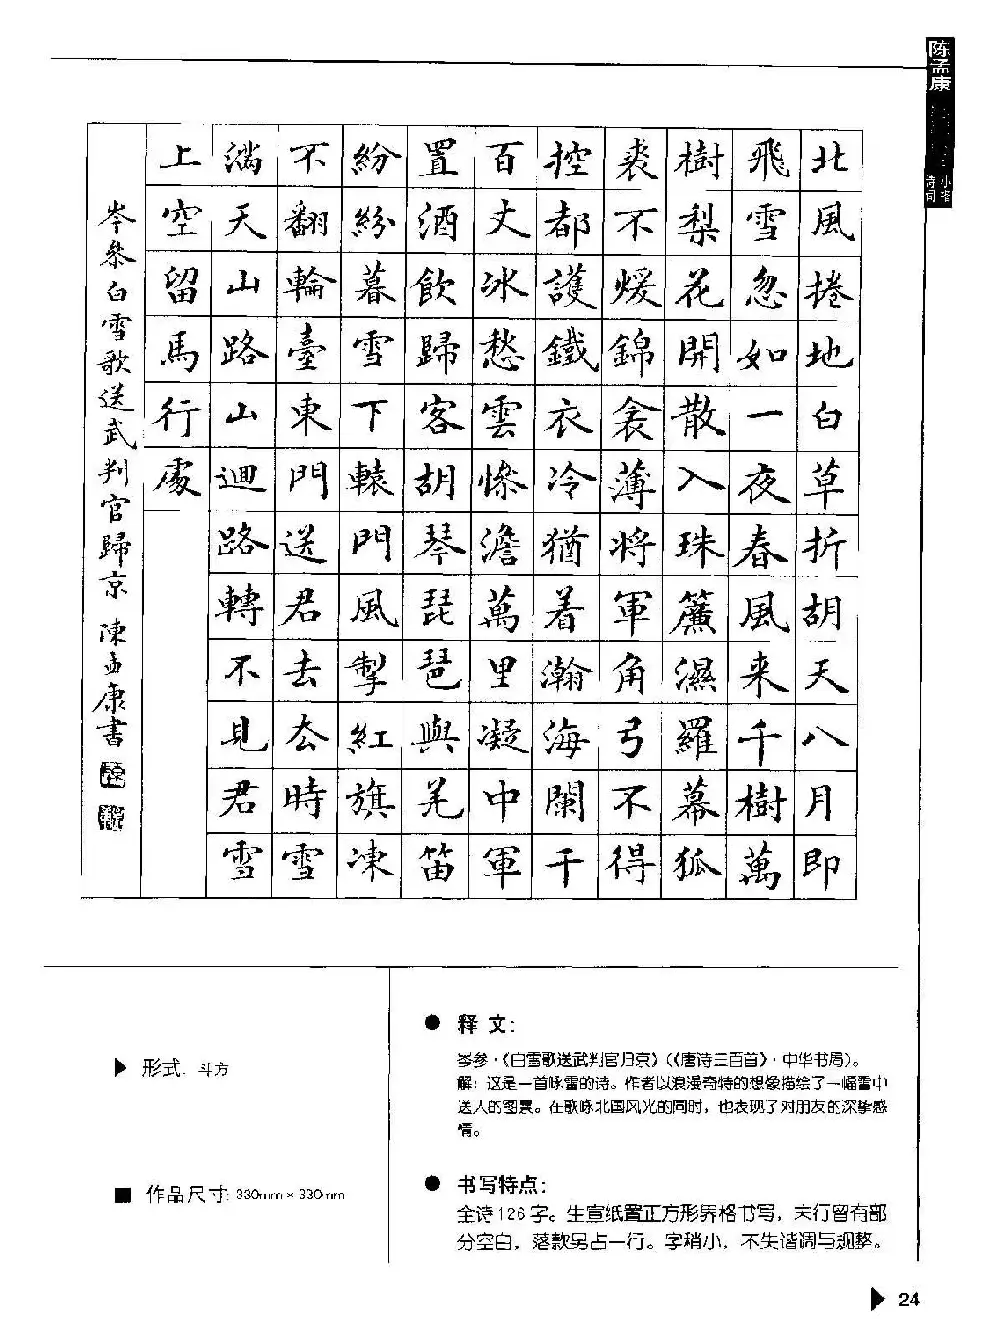 陈孟康
小楷
诗词
北風捲地白草折胡天八月即
飛雪忽如一夜春風来千樹萬
樹梨花開散入珠簾濕羅幕狐
裘不煖錦衾薄將軍角弓不得
控都護鐵衣冷猶着瀚海闌干
百丈冰愁雲慘澹萬里凝中軍
置酒飲歸客胡琴琵琶與羌笛
紛紛暮雪下轅門風掣紅旗凍
不翻輪臺東門送君去去時雪
滿天山路山迴路轉不見君雪
上空留馬行處
岑參白雪歌送武判官歸京 陳孟康書
▶ 形式: 斗方
■ 作品尺寸: 330mm×330mm
● 释 文:
岑参·《白雪歌送武判官归京》(《唐诗三百首》·中华书局)。
解: 这是一首咏雪的诗。作者以浪漫奇特的想像描绘了一幅雪中
送人的图景。在歌咏北国风光的同时, 也表现了对朋友的深挚感
情。
● 书写特点:
全诗126字。生宣纸置正方形界格书写, 末行留有部
分空白, 落款另占一行。字稍小, 不失谐调与规整。
▶ 24